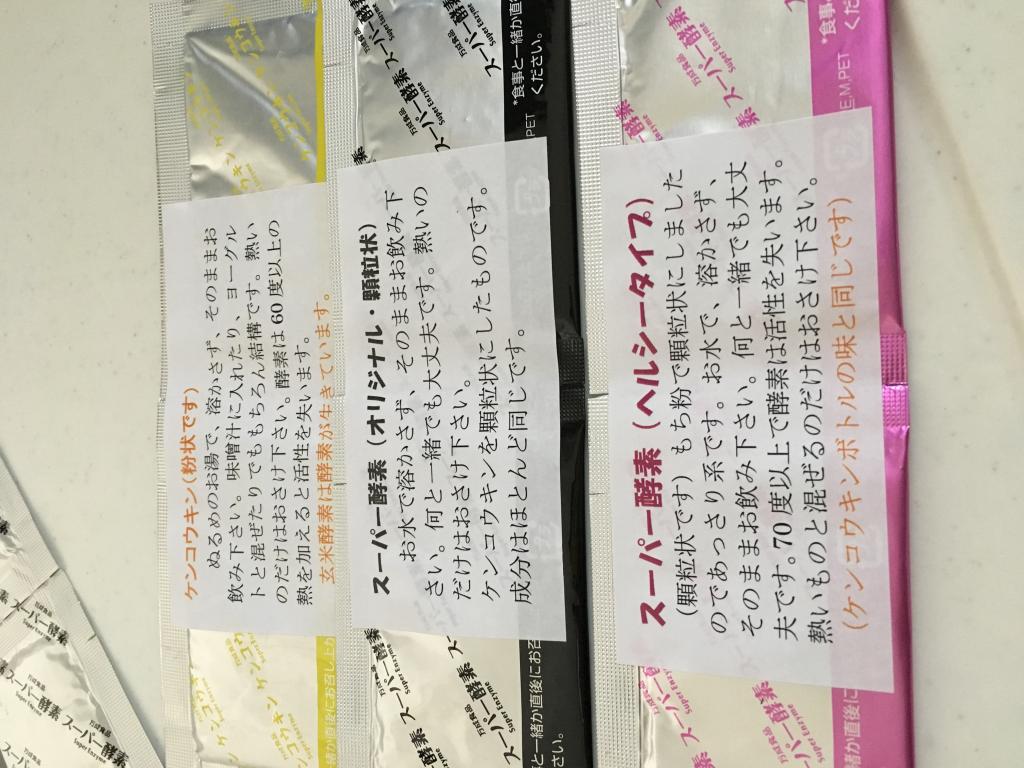 ケンコウキン(粉状です)
ぬるめのお湯で、溶かさず、そのままお
飲み下さい。味噌汁に入れたり、ヨーグル
トと混ぜたりでももちろん結構です。熱い
のだけはおさけ下さい。酵素は60度以上の
熱を加えると活性を失います。
玄米酵素は酵素が生きています。
スーパー酵素(オリジナル・顆粒状)
お水で溶かさず、そのままお飲み下
さい。何と一緒でも大丈夫です。熱いの
だけはおさけ下さい。
ケンコウキンを顆粒状にしたものです。
成分はほとんど同じです。
スーパー酵素(ヘルシータイプ)
(顆粒状です)もち粉で顆粒状にしました
のであっさり系です。お水で、溶かさず、
そのままお飲み下さい。何と一緒でも大丈
夫です。70度以上で酵素は活性を失います。
熱いものと混ぜるのだけはおさけ下さい。
(ケンコウキンボトルの味と同じです)
ケンコウキン
万成食品
スーパー酵素
Super Enzyme
*食事と一緒か直後に
ください。
PET
万成食品
スーパー酵素
Super Enzyme
*食事
くだ
E.M.PET